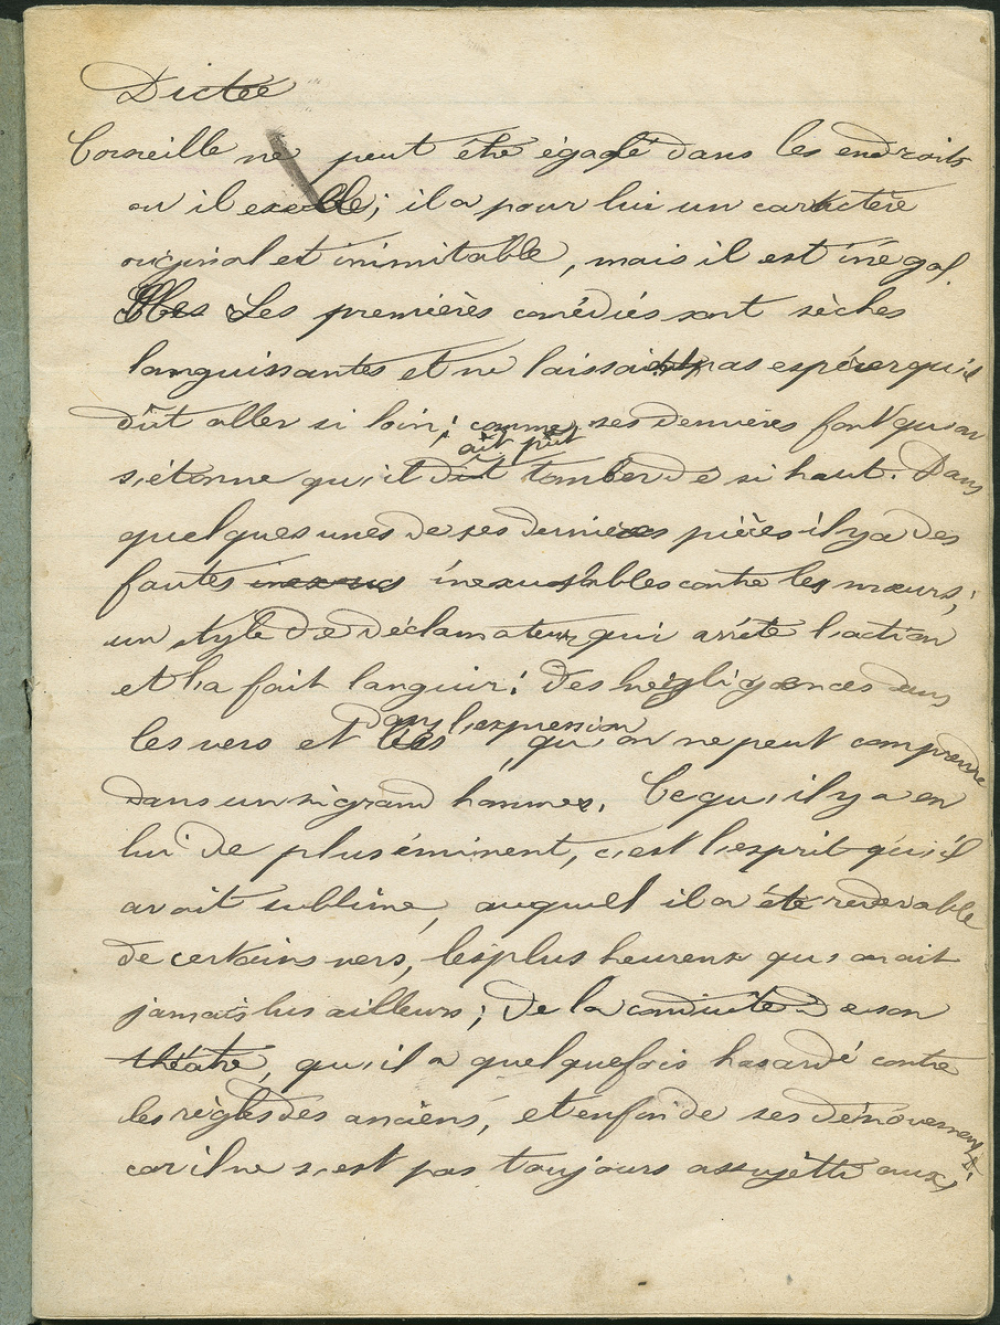 Dictée
Corneille ne peut être égalé dans les endroits
ou il excelle; il a pour lui un caractère
original et inimitable, mais il est inégal.
Ses premières comédies sont sèches
languissantes et ne laissaient pas espérer qu'il
dût aller si loin; comme ses dernières font qu'on
s'étonne qu'il ait pût tomber de si haut. Dans
quelques unes de ses dernières pièces il y a des
fautes inexcusables contre les mœurs;
un style de déclamateur qui arrête l'action
et la fait languir; des négligences dans
les vers et dans l'expression, qu'on ne peut comprendre
dans un si grand homme. Ce qu'il y a en
lui de plus éminent, c'est l'esprit qu'il
avait sublime, auquel il a été redevable
de certains vers, les plus heureux qu'on ait
jamais lus ailleurs; de la conduite de son
théâtre, qu'il a quelquefois hasardé contre
les règles des anciens, et enfin de ses dénouements;
car il ne s'est pas toujours assujetti aux